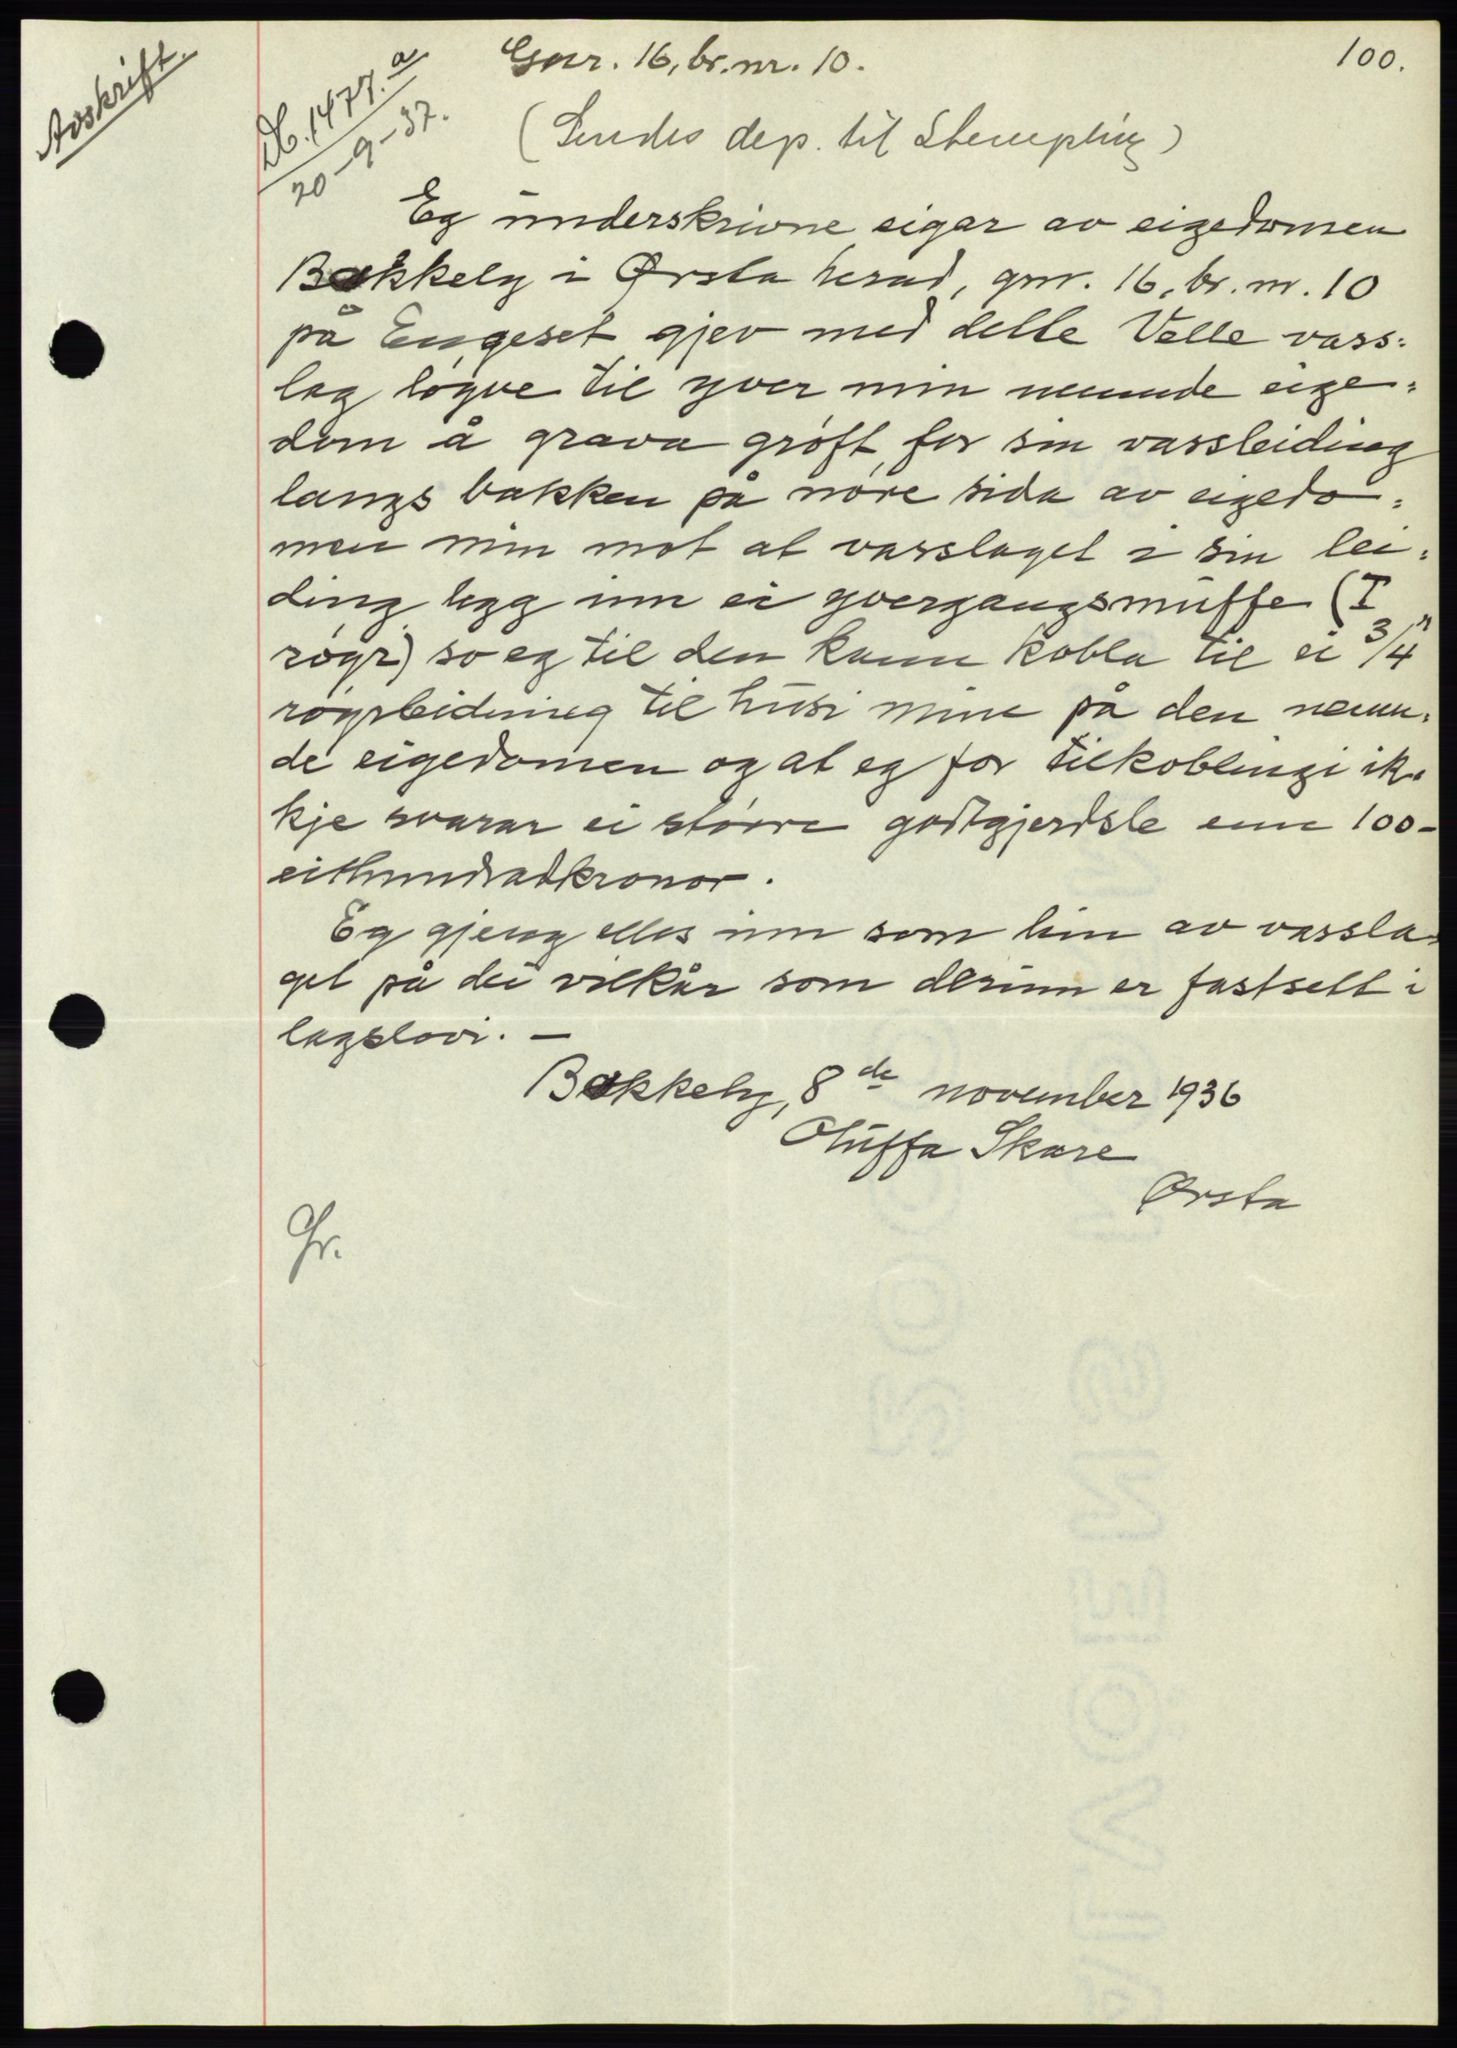 Avskrift.
Gnr. 16, br.nr. 10.
100.
Db. 1477.a
20-9-37.
(Sendes dep. til Stempling)
Eg underskrivne eigar av eigedomen
Bakkely i Ørsta herad, gnr. 16, br. nr. 10
på Engeset gjev med dette Velle vass=
lag løyve til yver min nemnde eige=
dom å grava grøft for sin vassleiding
langs bakken på nøre sida av eigedo=
men min mot at vasslaget i sin lei=
ding legg inn ei yvergangsmuffe (T
røyr) so eg til den kann kobla til ei 3/4"
røyrleidning til husi mine på den nemn=
de eigedomen og at eg for tilkoblingi ik=
kje svarar ei større godtgjerdsle enn 100-
eitthundradkronor.
Eg gjeng elles inn som lim av vassla=
get på dei vilkår som derinn er fastsett i
lagslovi. —
Bakkely, 8de november 1936
Oluffa Skare
Ørsta